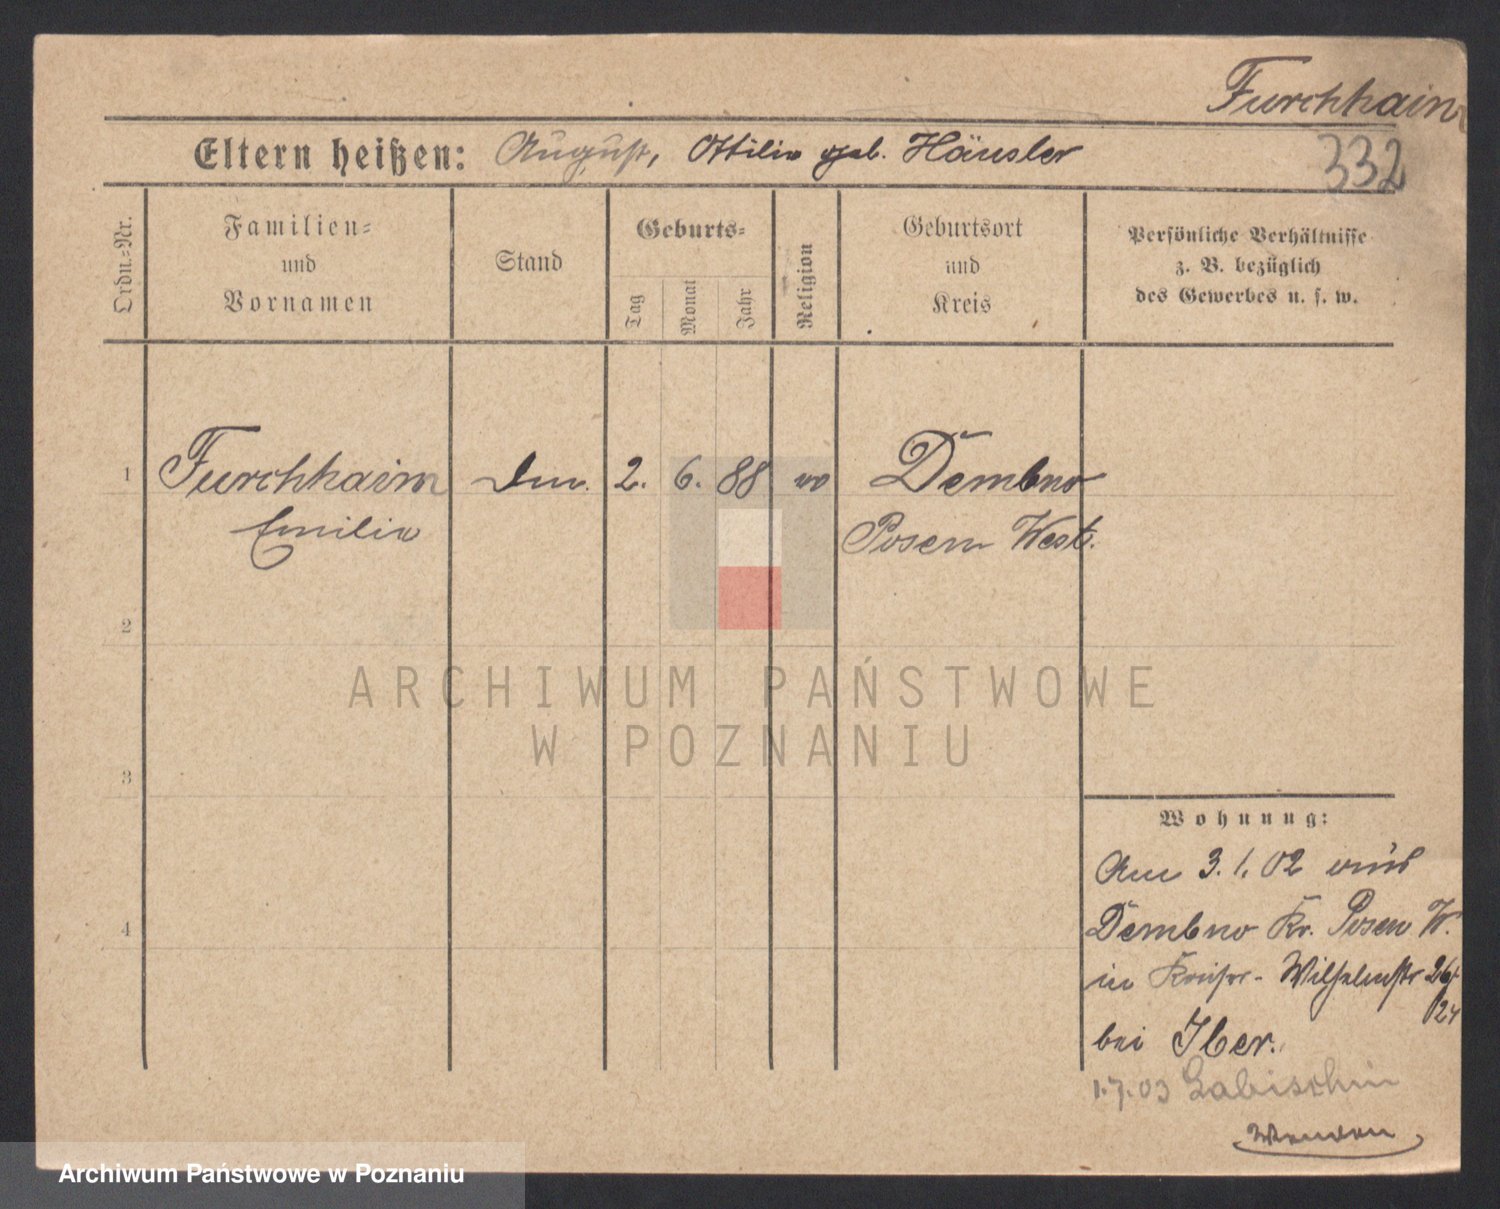 Furchheim
Eltern heißen: August, Ottilie geb. Häusler
332
Ordn.-Nr.
Familien-
und
Vornamen
Stand
Geburts-
Tag
Monat
Jahr
Religion
Geburtsort
und
Kreis
Persönliche Verhältnisse
z. B. bezüglich
des Gewerbes u. s. w.
1 Furchheim 2. 6. 88 Dembno
Emilie Posen West.
2
3
4
ARCHIWUM PAŃSTWOWE
W POZNANIU
Wohnung:
Am 3.1.02 aus
Dembno Kr. Posen W.
in Kaiser-Wilhelmstr 26/
24
bei Iber.
1.7.03 Labischin
Archiwum Państwowe w Poznaniu